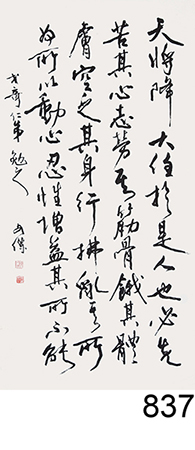 天将降大任於是人也必先
苦其心志劳其筋骨饿其體
膚空乏其身行拂亂其所
為所以動心忍性增益其所不能
837